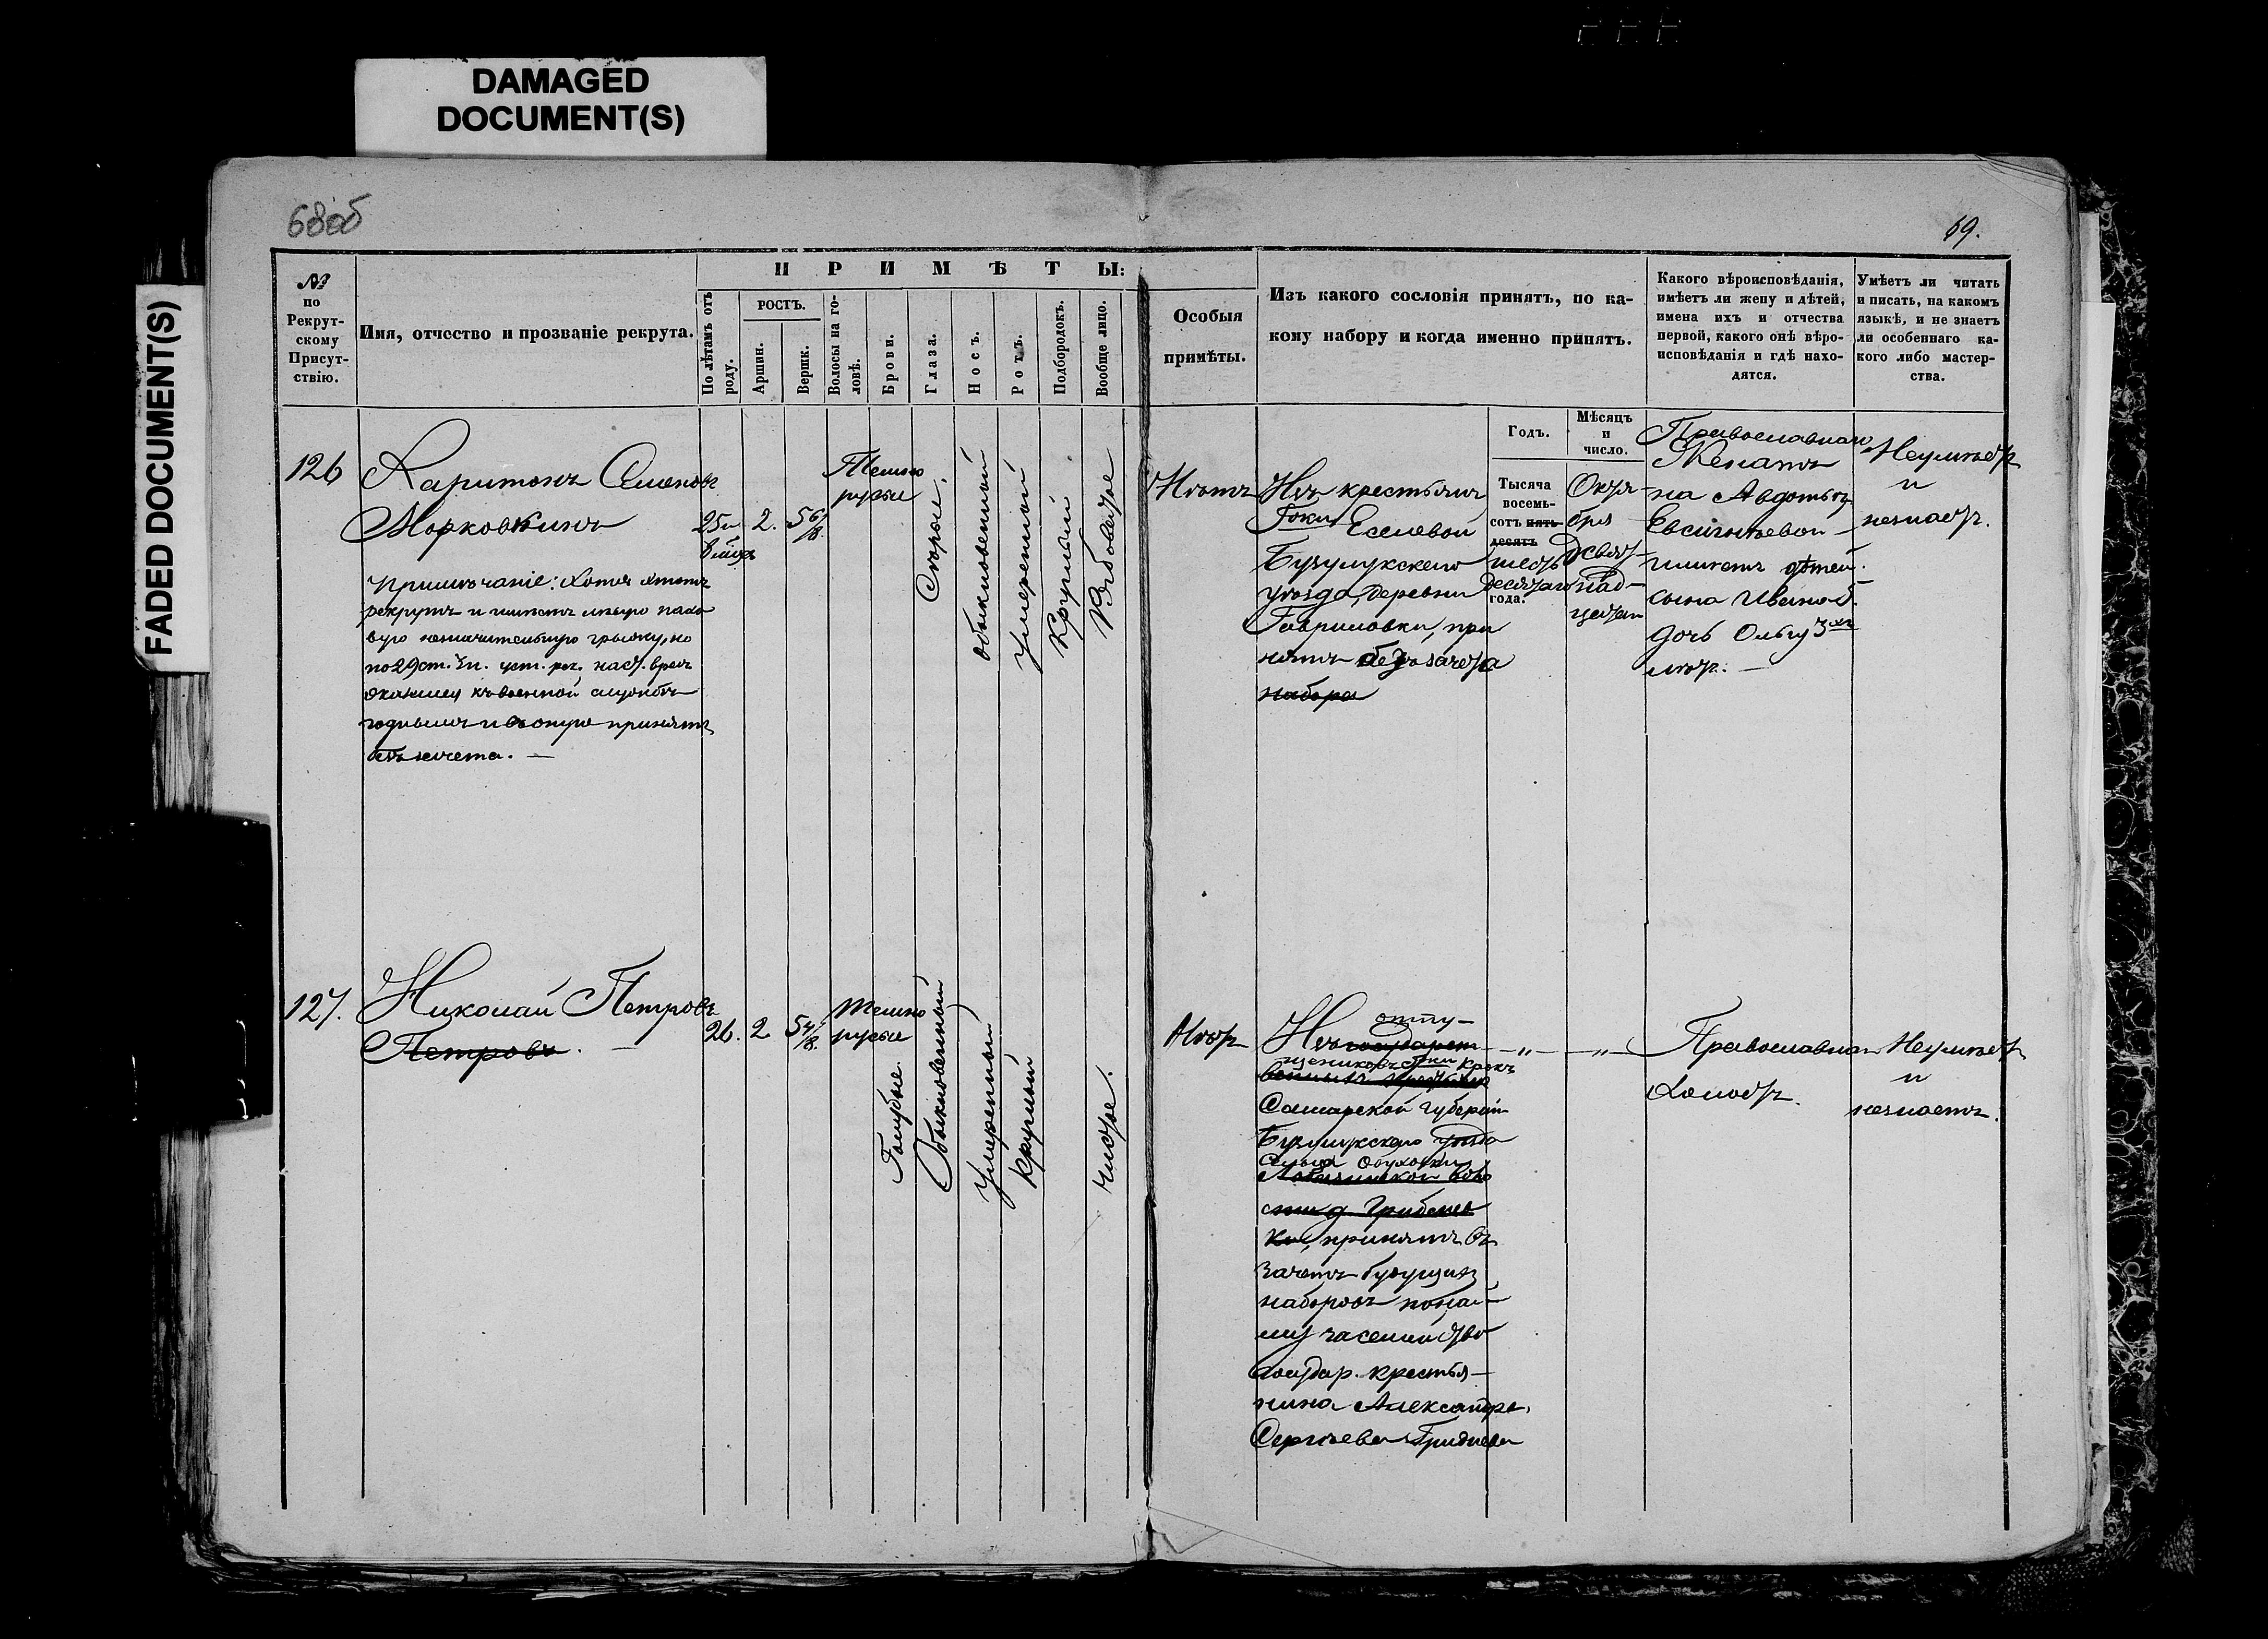 DAMAGED
DOCUMENT(S)
FADED DOCUMENT(S)
68об
69.
№
по
Рекрут-
скому
Присут-
ствію.
Имя, отчество и прозваніе рекрута.
ПРИМѢТЫ:
По лѣтамъ отъ
роду.
РОСТЪ.
Аршин.
Вершк.
Волосы на го-
ловѣ.
Брови.
Глаза.
Носъ.
Ротъ.
Подбородокъ.
Вообще лицо.
Особыя
примѣты.
Изъ какого сословія принятъ, по ка-
кому набору и когда именно принятъ.
Какого вѣроисповѣданія,
имѣетъ ли жену и дѣтей,
имена ихъ и отчества
первой, какого онѣ вѣро-
исповѣданія и гдѣ нахо-
дятся.
Умѣетъ ли читать
и писать, на какомъ
языкѣ, и не знаетъ
ли особеннаго ка-
кого либо мастер-
ства.
Годъ.
Мѣсяцъ
и
число.
126
Харитонъ Семеновъ
Морковкинъ
Примѣчаніе: Хотя этотъ
рекрутъ и имѣетъ лѣвую пахо
вую незначительную грыжу, но
по 29 ст. уст. рек.
оказался къ военной службѣ
годнымъ и потому принятъ
безъ зачета. —
25 и
2.
5 6/8
Темно
русые
Сѣрые.
обыкновенный
умѣренный
Круглый
Рябоватое
Нѣтъ
Изъ крестьянъ
Еселевой
Бузулукскаго
уѣзда, деревни
Гавриловки, при
нятъ безъ зачета
набора
Тысяча
восемь-
сотъ пять
десятъ
шесть
десятаго
года.
Октя-
бря
девят-
над-
цатаго
Православнаго
Женатъ
на Авдотьѣ
Евсигнѣевой —
имѣетъ дѣтей:
сына Ивана 5.
дочь Ольгу 3хъ
лѣтъ. —
Неумѣетъ
и
незнаетъ.
127.
Николай Петровъ
Петровъ. —
26.
2
5 4/8.
темно
русые
Голубые.
Обыкновенный
умѣренный
круглый
чистое.
Нѣтъ
отпу-
Изъ государст
щениковъ
венныхъ
Самарской губерніи
Бузулукскаго уѣзда
принятъ въ
зачетъ будущихъ
наборовъ по най-
му за семейство
государ. крестья-
нина Александра
Сергѣева Гриднева
— „ —
— „ —
Православнаго
Холостъ.
Неумѣетъ
и
незнаетъ.